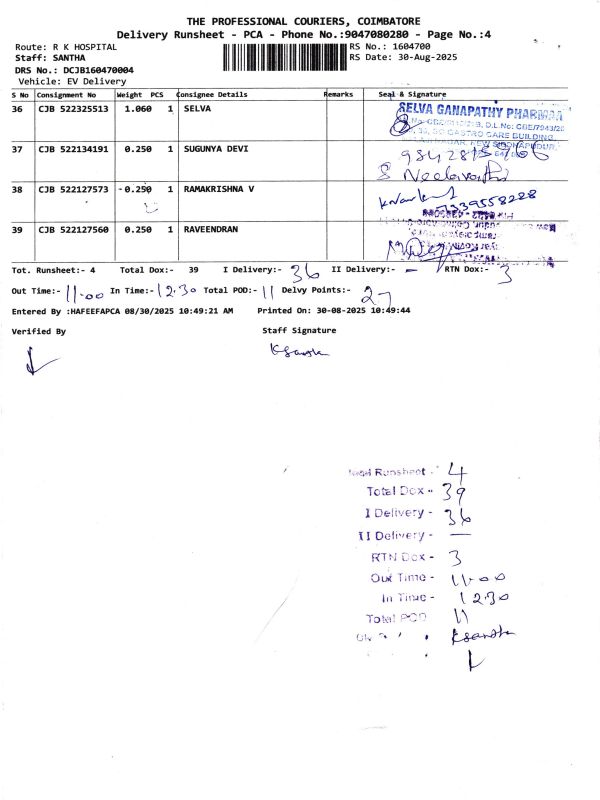 THE PROFESSIONAL COURIERS, COIMBATORE
Delivery Runsheet - PCA - Phone No.:9047080280 - Page No.:4
Route: R K HOSPITAL RS No.: 1604700
Staff: SANTHA RS Date: 30-Aug-2025
DRS No.: DCJB160470004
Vehicle: EV Delivery
S No Consignment No Weight PCS Consignee Details Remarks Seal & Signature
36 CJB 522325513 1.060 1 SELVA SELVA GANAPATHY PHARMA
GASTRO CARE BUILDING,
37 CJB 522134191 0.250 1 SUGUNYA DEVI
S Neelavathi
38 CJB 522127573 0.250 1 RAMAKRISHNA V
7339558228
39 CJB 522127560 0.250 1 RAVEENDRAN
Tot. Runsheet:- 4 Total Dox:- 39 I Delivery:- 36 II Delivery:- — RTN Dox:- 3
Out Time:- 11.00 In Time:- 12.30 Total POD:- 11 Delvy Points:- 27
Entered By :HAFEEFAPCA 08/30/2025 10:49:21 AM Printed On: 30-08-2025 10:49:44
Verified By Staff Signature
K Santha
Total Runsheet - 4
Total Dox - 39
I Delivery - 36
II Delivery - —
RTN Dox - 3
Out Time - 11.00
In Time - 12.30
Total POD 11
K Santha